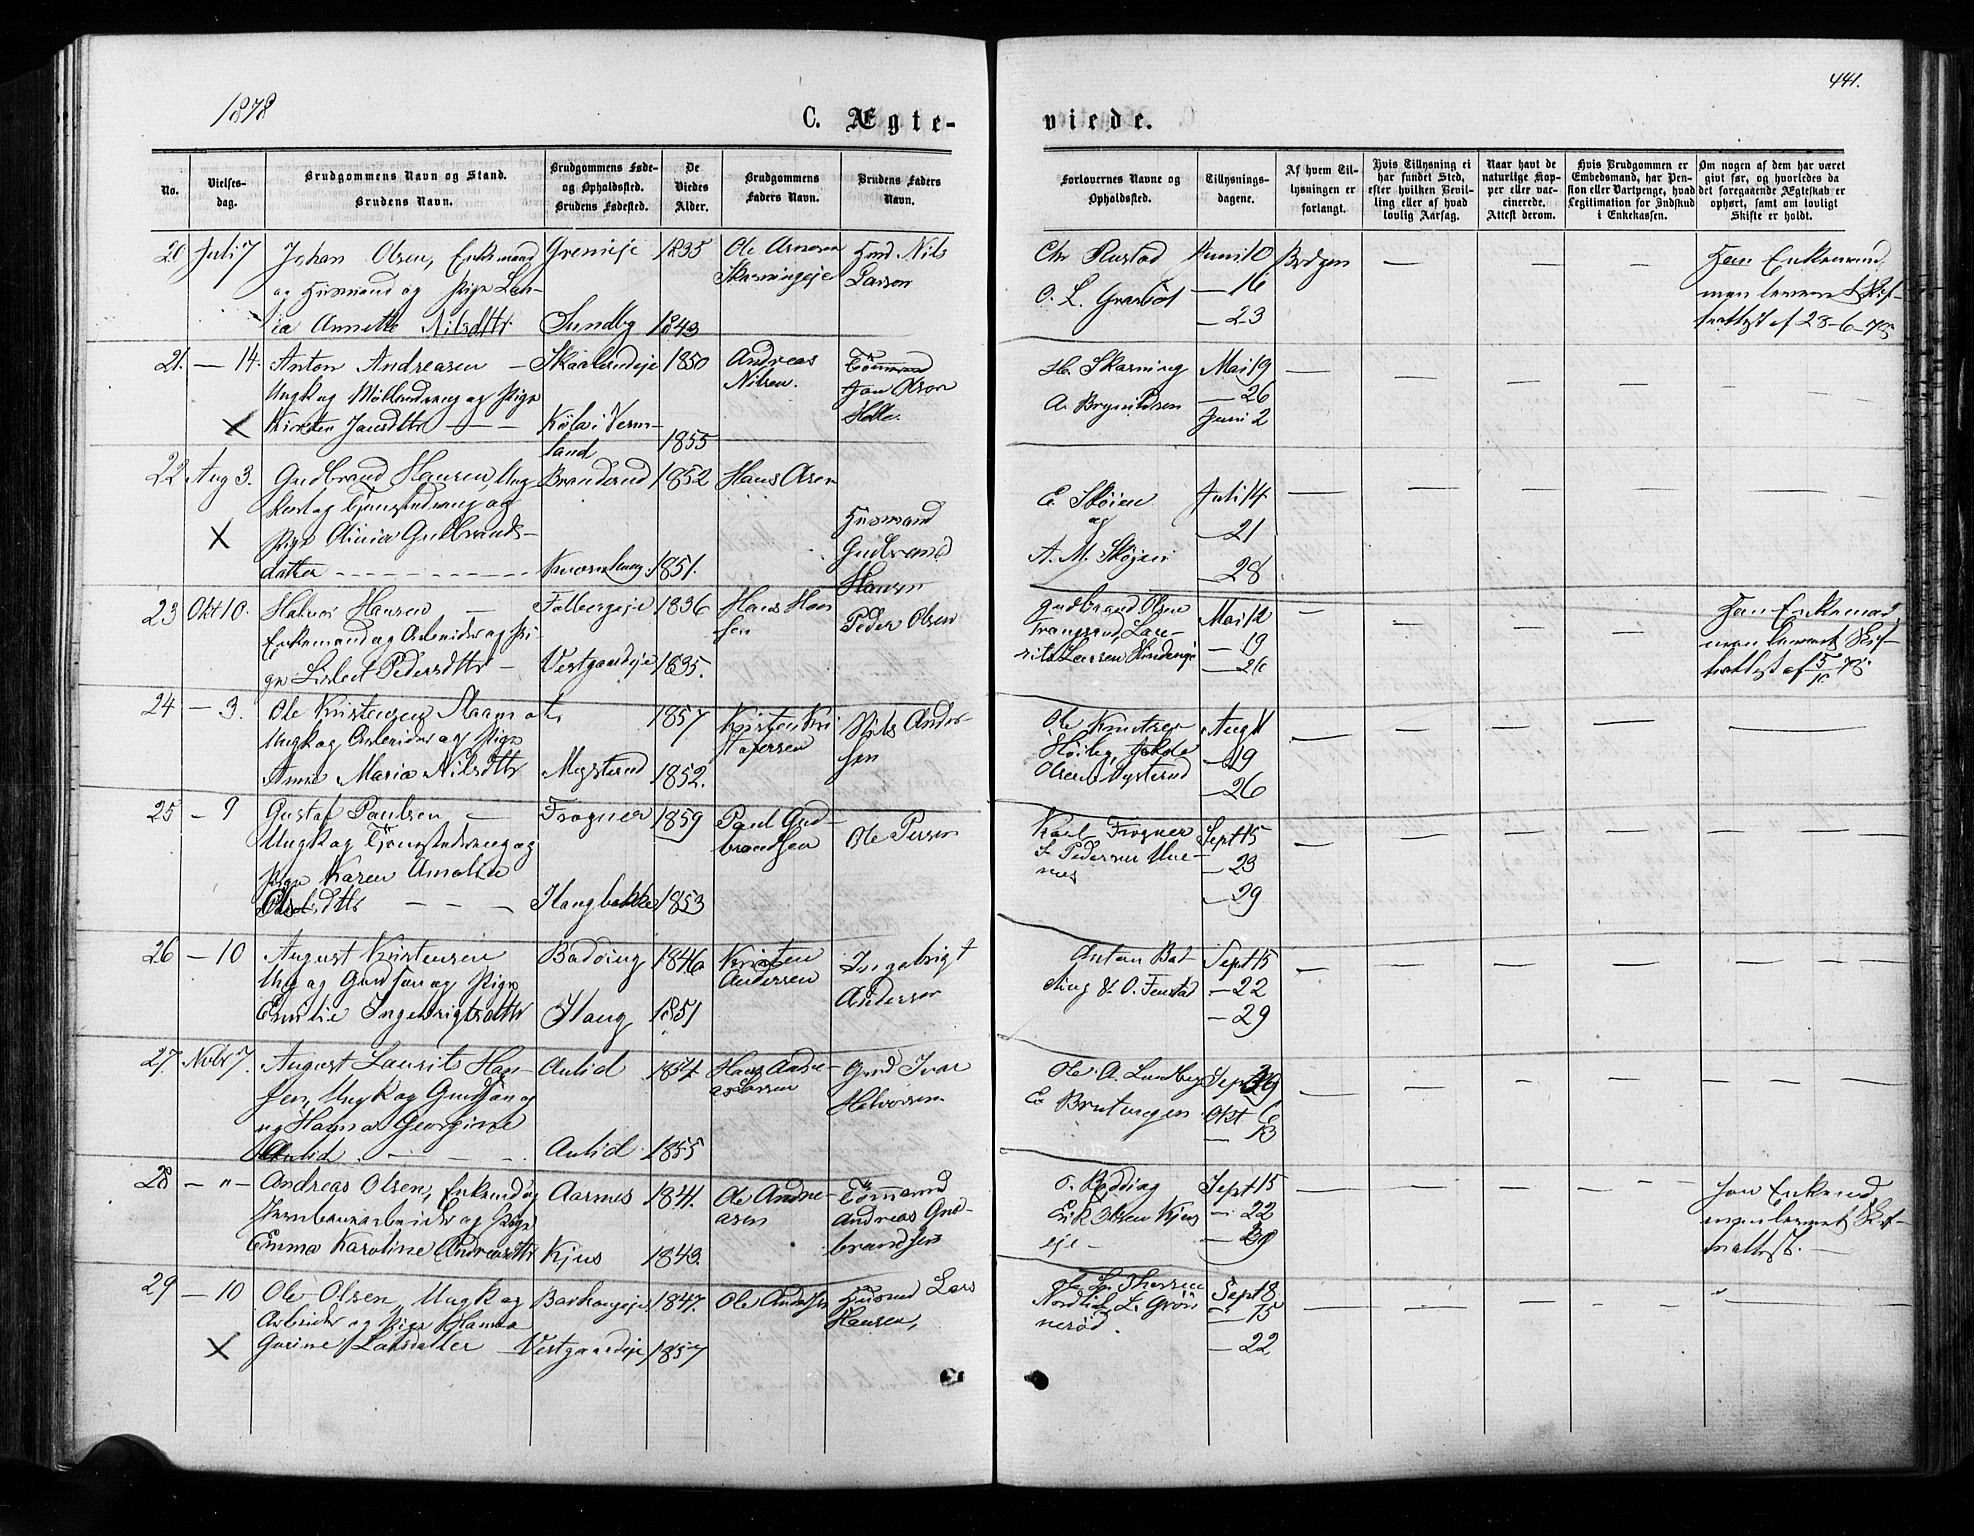 1878
441.
C. Ægte-
viede.
No.
Vielses-
dag.
Brudgommens Navn og Stand.
Brudens Navn.
Brudgommens Føde-
og Opholdssted.
Brudens Fødested.
De
Viedes
Alder.
Brudgommens
Faders Navn.
Brudens Faders
Navn.
Forlovernes Navne og
Opholdssted.
Tillysnings-
dagene.
Af hvem Til-
lysningen er
forlangt.
Hvis Tillysning ei
har fundet Sted,
efter hvilken Bevil-
ling eller af hvad
lovlig Aarsag.
Naar havt de
naturlige Kop-
per eller vac-
cinerede.
Attest derom.
Hvis Brudgommen er
Embedsmand, har Pen-
sion eller Vartpenge, hvad
Legitimation for Indskud
i Enkekassen.
Om nogen af dem har været
givt før, og hvorledes da
det foregaaende Ægteskab er
ophørt, samt om lovligt
Skifte er holdt.
20 Juli 7 Johan Olsen, Enkemand
og Husmand og Pige
Annette Nilsdttr
Sundby
1835
1843
Ole Arnesen
Skarningeje
Husmd. Nils
Larson
Chr Rustad
O. L.
Juni 10
— 16
— 23
Brdgm
— — — —
Han Enkemand,
af 28-6-78
21. — 14. Anton Andreasen —
Ungk og og Pige
Kirsten Jansdttr — —
Köla i Verm-
land
1850
1855
Andreas
Nilsen.
Jan Olson
Helle.
H. Skarning
A. Brynildsen
Mai 19
— 26
Juni 2
— — — — — —
22 Aug 3. Gudbrand Hansen, Ung-
og
Pige Gudbrands-
datter
Branderud
1852
1851.
Hans Olsen
Husmand
Gudbrand
Hansen
E. Skøien
og
A. M. Skøjen
Juli 14
— 21
— 28
— — — — — —
23 Okt 10. Halvor Hansen —
Enkemand og Arbeider og Pi-
ge Lisbet Pedersdttr —
Folbergeje
Vestgaardeje
1836
1835.
Hans Han
sen
Peder Olsen
Gudbrand Olsen
Mai 12
— 19
— 26
— — — — —
Han Enkemand,
af 5/10 78
24 — 3. Ole Kristensen
Ungk og Arbeider og Pige
Anne Maria Nilsdttr
Mysterud
1857
1852.
Kristen Kri
stofersen
Nils Ander-
sen
Ole Knutsen
Olsen Mysterud
Aug 11
— 19
— 26
— — — — — —
25 — 9 Gustaf Paulsen —
Ungk og Tjenestedreng og
Pige Karen Amalie
Olsdttr — — —
Frogner
Haugbakke
1859
1853
Paul Gud-
brandsen
Ole Person
Karl Frogner
Sept 15
— 23
— 29
— — — — — —
26 — 10 August Kristensen
Ung og Gudsøn og Pige
Emilie Ingebrigtsdttr
Badding
Haug
1846
1851
Kristen
Andersen
Ingebrigt
Andersen
Anton Bad-
ding & O. Fenstad
Sept 15
— 22
— 29
— — — — — —
27. Nvbr 7. August Laurits Han-
sen, Ungk og Gudsøn og
og Hanna Georgine
Aulid
Aulid
Aulid
1854
1855
Hans Andre-
as Larsen
Grd Ivar
Halvorsen
Ole A. Lundby
E. Brutangen
Sept 29
Okt 6
— 13
— — — — — —
28 — " — Andreas Olsen, Enkemd og
Jernbanearbeider og Pige
Emma Karoline Andreasdttr
Aarnes
Kjus
1841.
1843.
Ole Andre-
asen
Tömmand
Andreas Gud-
brandsen
O. Bødding
Erik Olsen Kjus
eje —
Sept 15
— 22
— 29
— — — — —
Han Enkemd
29 — 10 Ole Olsen, Ungk og
Arbeider og Pige Hanna
Gurine Larsdatter
Vestgaardeje
1847.
1857
Ole Andersen
Husmd Lars
Hansen,
Sept 8.
— 15
— 22
— — — — — —